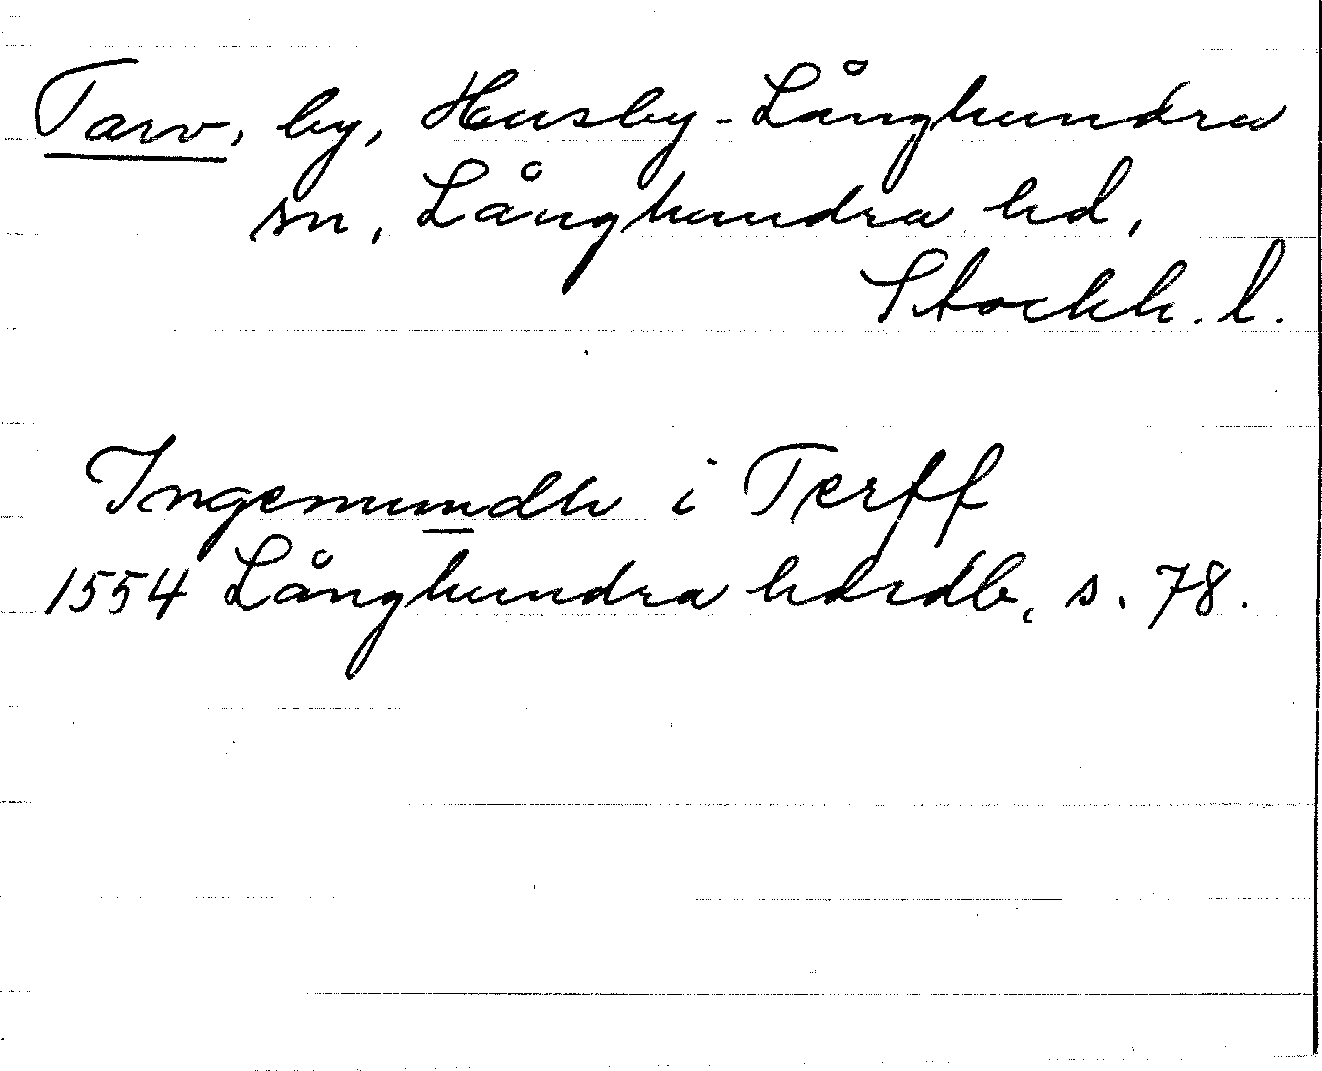 Tarv, by, Husby-Långhundra
sn, Långhundra hd,
Stockh. l.
Ingemundh i Terff
1554 Långhundra hdrdb, s. 78.